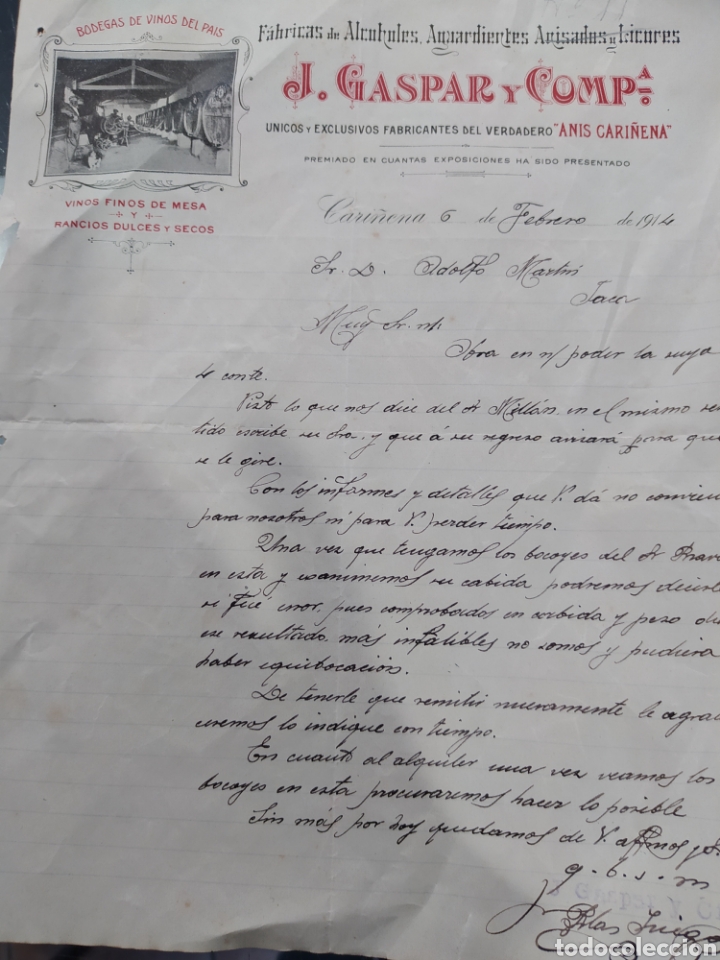 BODEGAS DE VINOS DEL PAIS
Fábricas de Alcoholes, Aguardientes Anisados y Licores
J. GASPAR Y COMPª.
UNICOS Y EXCLUSIVOS FABRICANTES DEL VERDADERO "ANIS CARIÑENA"
PREMIADO EN CUANTAS EXPOSICIONES HA SIDO PRESENTADO
VINOS FINOS DE MESA
Y
RANCIOS DULCES Y SECOS
Cariñena 6 de Febrero de 1914
Sr. D. Adolfo Martín
Jaca
Muy Sr. n/.
Obra en n/ poder la suya
4 conte.
Visto lo que nos dice del Sr Millán en el mismo sen
tido escribe su Sra. y que á su regreso avisará para que
se le gire.
Con los informes y detalles que V. dá no convien
para nosotros ni para V. perder tiempo.
Una vez que tengamos los bocoyes del Sr
en esta y examinemos su cabida podremos decirl
si fue error, pues comprobados en cabida y peso di
ese resultado, más infalibles no somos y pudiera
haber equibocación.
De tenerle que remitir nuevamente le agrad
ceremos lo indique con tiempo.
En cuanto al alquiler una vez veamos los
bocoyes en esta procuraremos hacer lo posible
Sin más por hoy quedamos de V. affmos y S
q. b. s. m
J Gaspar y C
Blas
todocoleccion